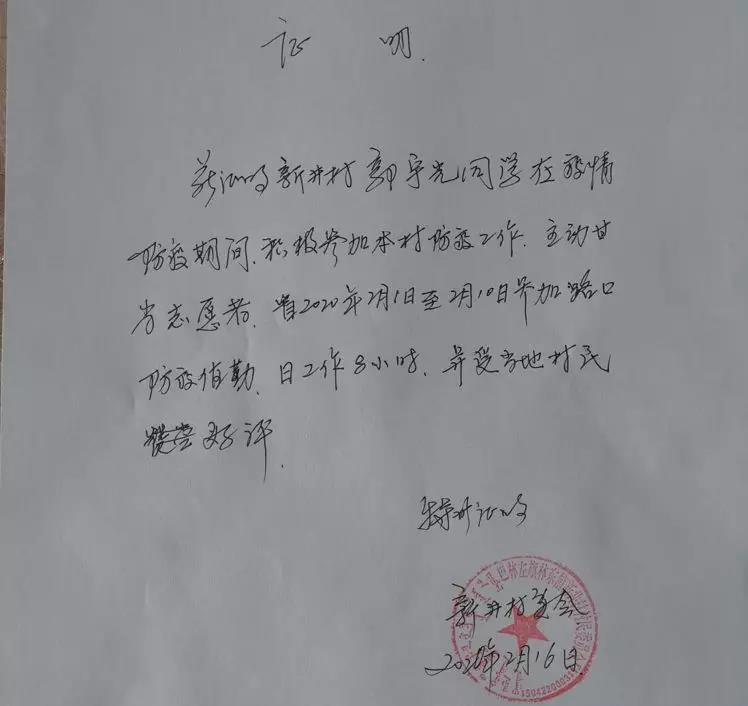 证 明.
兹证明新井村郭宇光同学在疫情
防疫期间.积极参加本村防疫工作.主动甘
当志愿者.自2020年2月1日至2月10日参加路口
防疫值勤.日工作8小时.并受当地村民
好评.
特此证明
新井村委会
2020年2月16日
巴林左旗林东镇新井村村民委员会